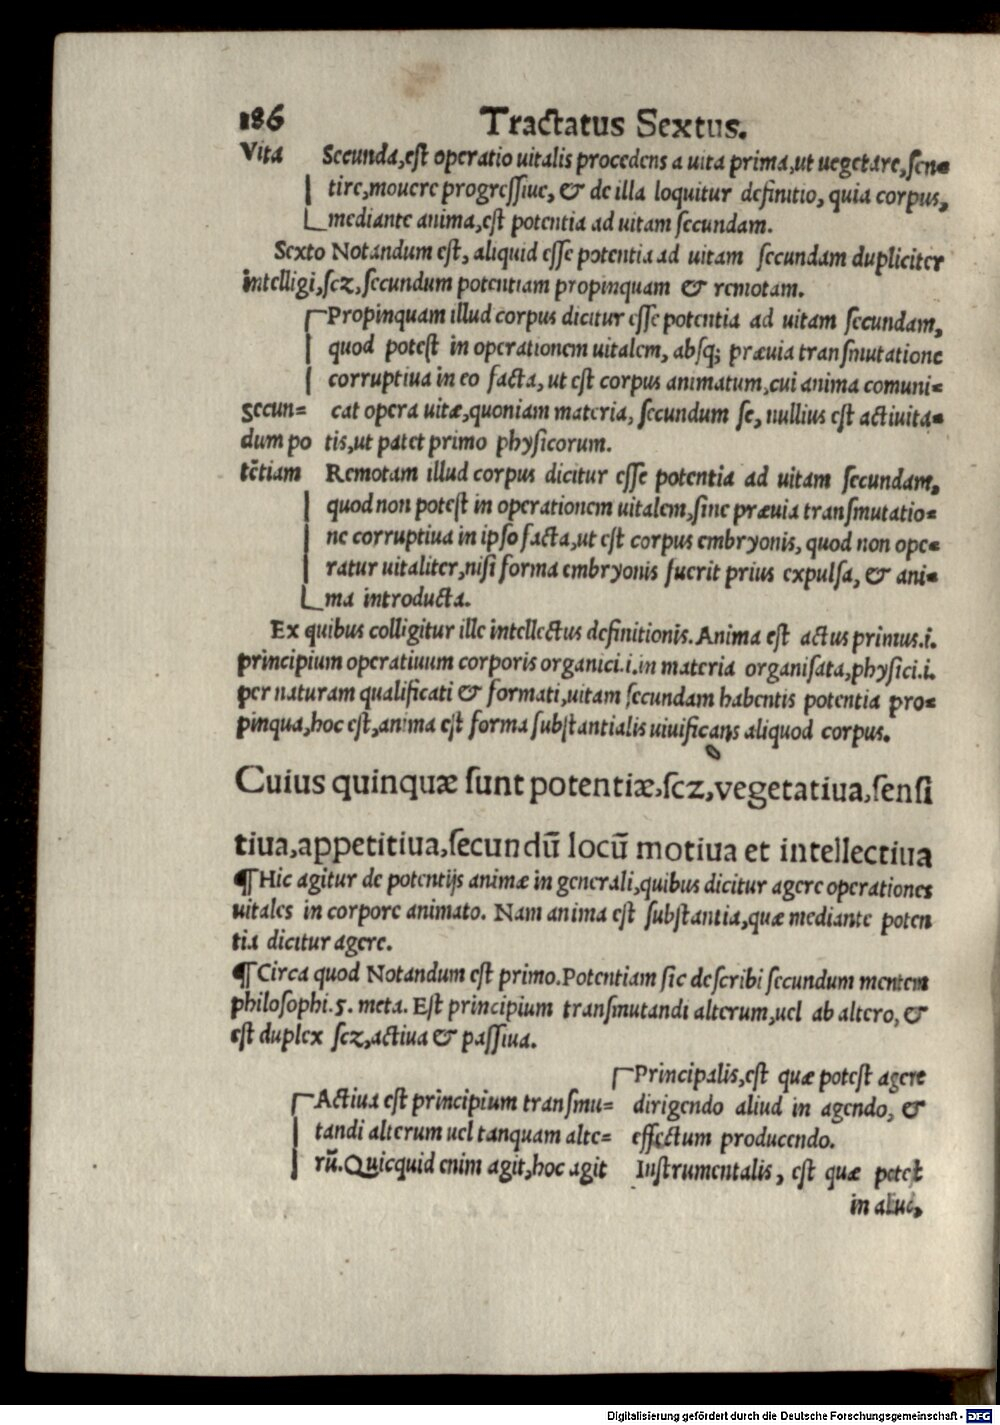 186 Tractatus Sextus.
Vita Secunda,est operatio uitalis procedens a uita prima,ut uegetare,sen=
tire,mouere progressiue, & de illa loquitur definitio, quia corpus,
mediante anima,est potentia ad uitam secundam.
Sexto Notandum est, aliquid esse potentia ad uitam secundam dupliciter
intelligi,scz,secundum potentiam propinquam & remotam.
Propinquam illud corpus dicitur esse potentia ad uitam secundam,
quod potest in operationem uitalem, absq; præuia transmutatione
corruptiua in eo facta, ut est corpus animatum,cui anima comuni=
Secun= cat opera uitæ,quoniam materia, secundum se, nullius est actiuita=
dum po tis,ut patet primo physicorum.
tētiam Remotam illud corpus dicitur esse potentia ad uitam secundam,
quod non potest in operationem uitalem,sine præuia transmutatio=
ne corruptiua in ipso facta,ut est corpus embryonis, quod non ope=
ratur uitaliter,nisi forma embryonis fuerit prius expulsa, & ani=
ma introducta.
Ex quibus colligitur ille intellectus definitionis. Anima est actus primus.i.
principium operatiuum corporis organici.i.in materia organisata,physici.i.
per naturam qualificati & formati,uitam secundam habentis potentia pro=
pinqua,hoc est,anima est forma substantialis uiuificans aliquod corpus.
Cuius quinquæ sunt potentiæ,scz,vegetatiua,sensi
tiua,appetitiua,secundū locū motiua et intellectiua
¶ Hic agitur de potentijs animæ in generali,quibus dicitur agere operationes
uitales in corpore animato. Nam anima est substantia,quæ mediante poten
tia dicitur agere.
¶ Circa quod Notandum est primo.Potentiam sic describi secundum mentem
philosophi.5. meta. Est principium transmutandi alterum,uel ab altero, &
est duplex scz,actiua & passiua.
Principalis,est quæ potest agere
Actiua est principium transmu= dirigendo aliud in agendo, &
tandi alterum uel tanquam alte= effectum producendo.
rū.Quicquid enim agit,hoc agit Instrumentalis, est quæ potest
in aliud,
Digitalisierung gefördert durch die Deutsche Forschungsgemeinschaft - DFG